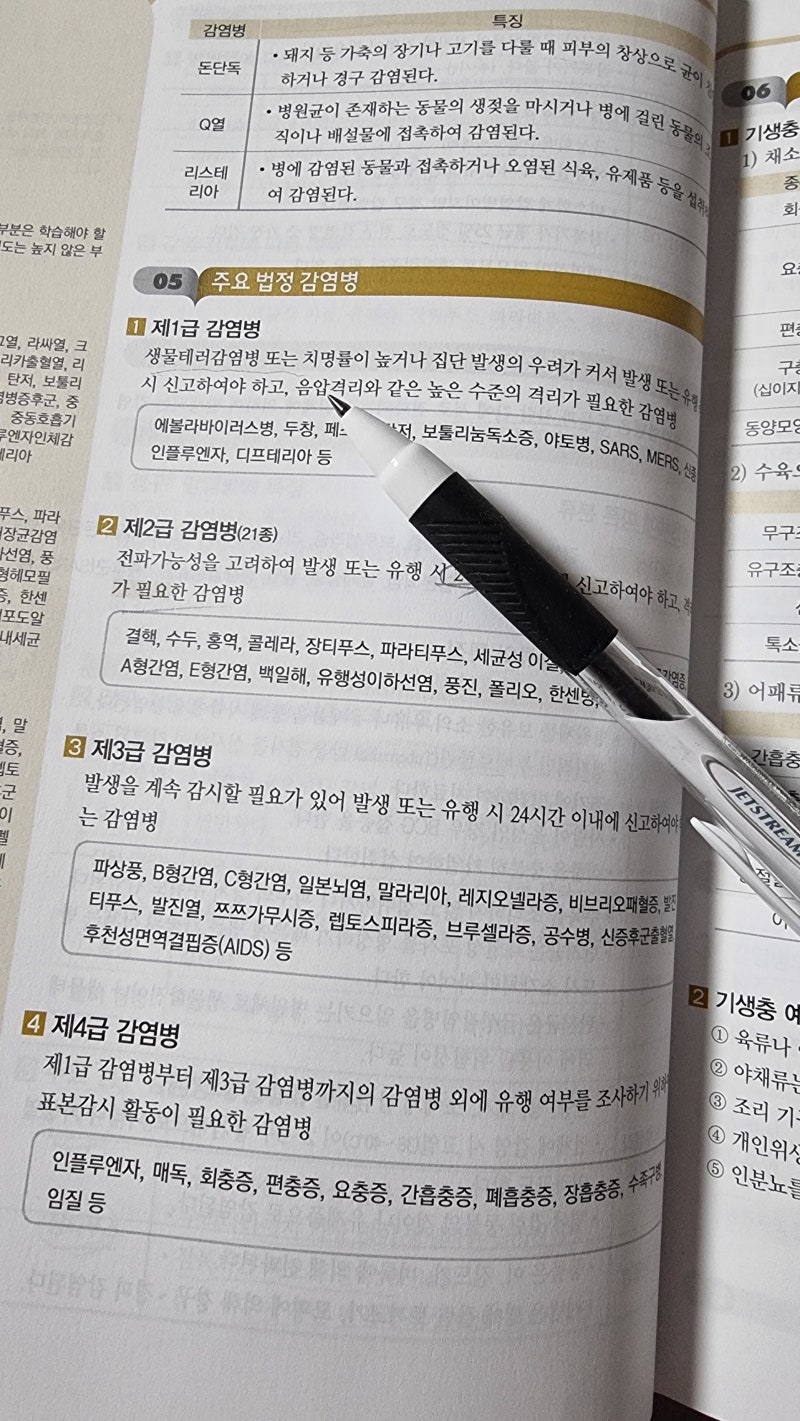 감염병 특징
돈단독
• 돼지 등 가축의 장기나 고기를 다룰 때 피부의 창상으로 균이
하거나 경구 감염된다.
Q열
• 병원균이 존재하는 동물의 생젖을 마시거나 병에 걸린 동물의
직이나 배설물에 접촉하여 감염된다.
리스테
리아
• 병에 감염된 동물과 접촉하거나 오염된 식육, 유제품 등을
여 감염된다.
05 주요 법정 감염병
1 제1급 감염병
생물테러감염병 또는 치명률이 높거나 집단 발생의 우려가 커서 발생 또는 유행
시 신고하여야 하고, 음압격리와 같은 높은 수준의 격리가 필요한 감염병
에볼라바이러스병, 두창, 보툴리눔독소증, 야토병, SARS, MERS,
인플루엔자, 디프테리아 등
2 제2급 감염병(21종)
전파가능성을 고려하여 발생 또는 유행 시 신고하여야 하고,
가 필요한 감염병
결핵, 수두, 홍역, 콜레라, 장티푸스, 파라티푸스, 세균성
A형간염, E형간염, 백일해, 유행성이하선염, 풍진, 폴리오, 한센병,
3 제3급 감염병
발생을 계속 감시할 필요가 있어 발생 또는 유행 시 24시간 이내에 신고하여야
는 감염병
파상풍, B형간염, C형간염, 일본뇌염, 말라리아, 레지오넬라증, 비브리오패혈증, 발진
티푸스, 발진열, 쯔쯔가무시증, 렙토스피라증, 브루셀라증, 공수병, 신증후군출혈열
후천성면역결핍증(AIDS) 등
4 제4급 감염병
제1급 감염병부터 제3급 감염병까지의 감염병 외에 유행 여부를 조사하기
표본감시 활동이 필요한 감염병
인플루엔자, 매독, 회충증, 편충증, 요충증, 간흡충증, 폐흡충증, 장흡충증, 수족구병
임질 등
JETSTREAM
부분은 학습해야 할
도는 높지 않은 부
라싸열, 크
리카출혈열, 리
탄저, 보툴리
중동호흡기
06
1 기생충
1) 채소
2) 수육
무구조
유구조
3) 어패류
간흡충
2 기생충 예
① 육류나
② 야채류는
③ 조리 기구
④ 개인위생
⑤ 인분뇨를